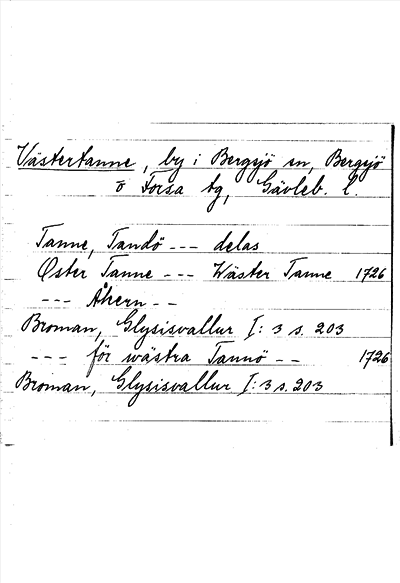 Västertanne, by i Bergsjö sn, Bergsjö
o Forsa tg, Gävleb. l.
Tanne, Tandö --- delas
Öster Tanne --- Wäster Tanne 1726
--- Åhern --
Broman, Glysisvallur I: 3 s. 203
--- för wästra Tannö -- 1726
Broman, Glysisvallur I: 3 s. 203